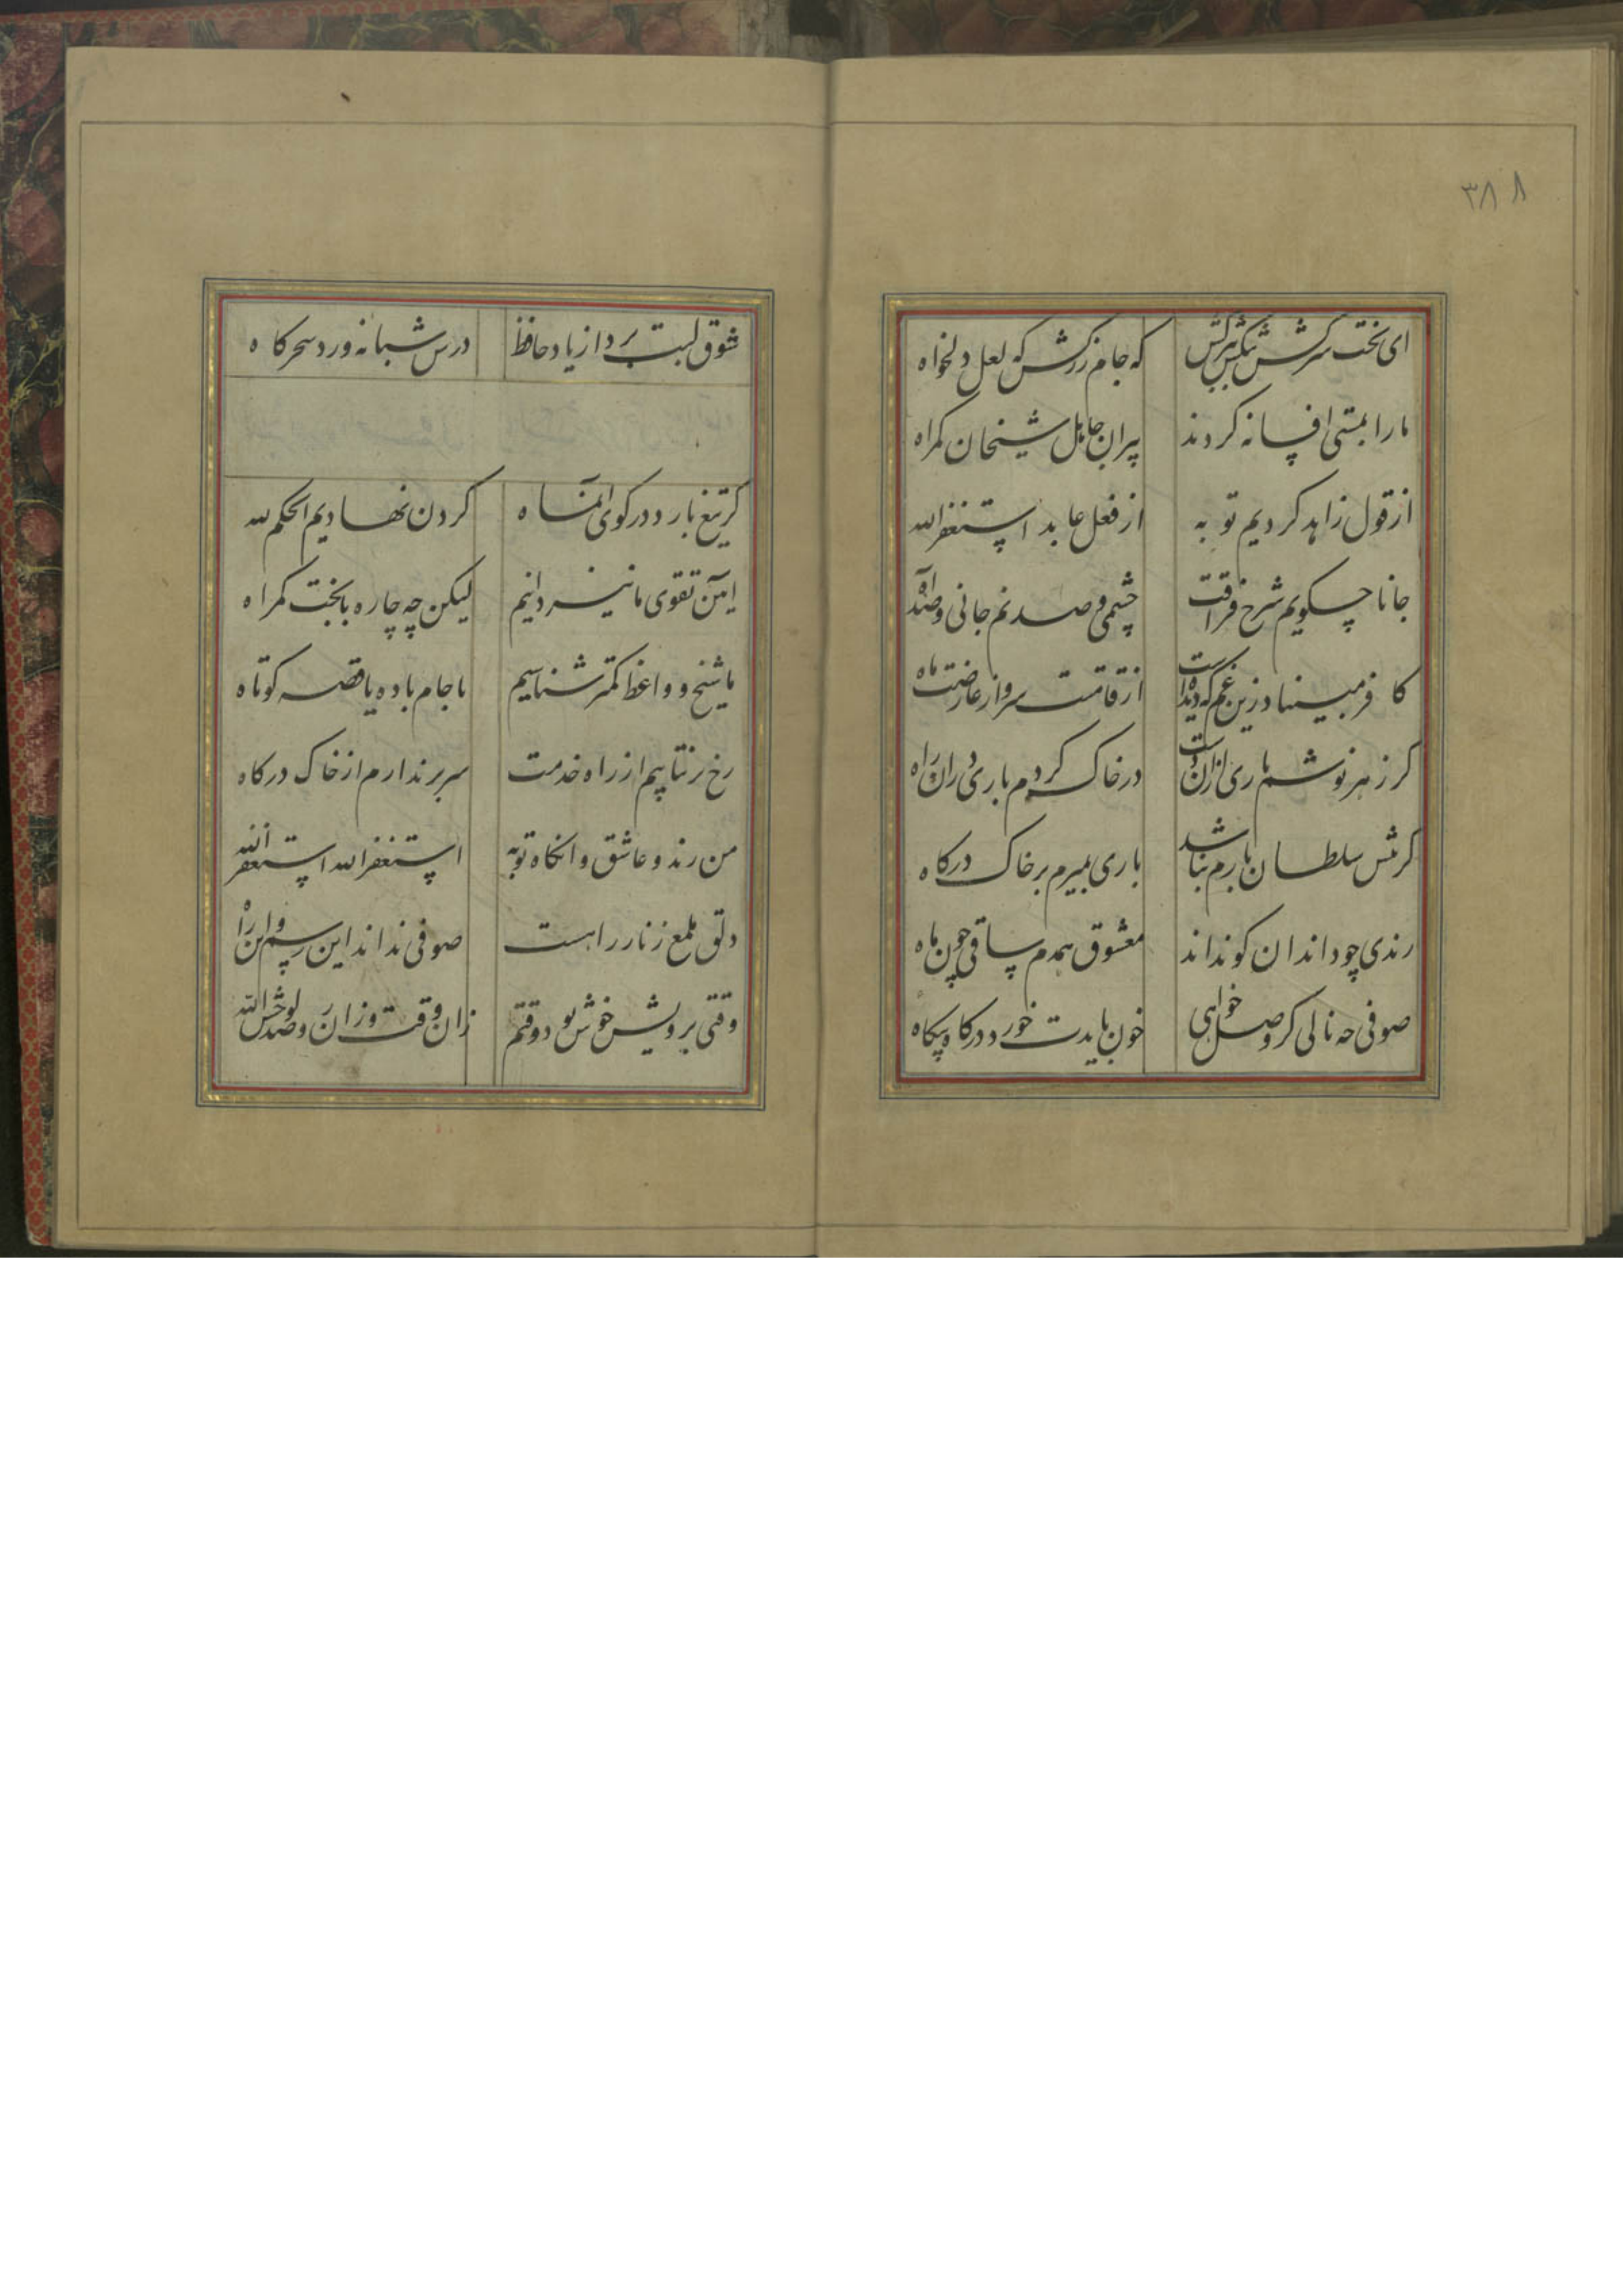 ۳۸۸
ای بخت سرکش تنکش ببرکش که جام زرکش که لعل دلخواه
ما را بمستی افسانه کردند پیران جاهل شیخان کمراه
از قول زاهد کردیم توبه از فعل عابد استغفرالله
جانا چکویم شرح فراقت چشمی و صد نم جانی و صد آه
کافر مبیناد زین غم که دیده است از قامتت سرو از عارضت ماه
کر زهر نوشم باری از آن دست در خاک کردم باری در آن راه
کرش سلطان بارم نباشد باری بمیرم بر خاک درکاه
رندی چو داند ان کو نداند معشوق همدم ساقی چون ماه
صوفی چه نالی کر وصل خواهی خون بایدت خورد در کاه و بیکاه
شوق لبت برد از یاد حافظ درس شبانه ورد سحرکاه
کر تیغ بارد در کوی آنماه کردن نهادیم الحکم لله
ایین تقوی ما نیز دانیم لیکن چه چاره با بخت کمراه
ما شیخ و واعظ کمتر شناسیم یا جام باده یا قصه کوتاه
رخ بر نتابیم از راه خدمت سر بر ندارم از خاک درکاه
من رند و عاشق وانکاه توبه استغفرالله استغفرالله
دلق ملمع زنار راهست صوفی نداند این رسم و این راه
وقتی برویش خوش بود وقتم زان وقت وزان رو صد لوحش الله